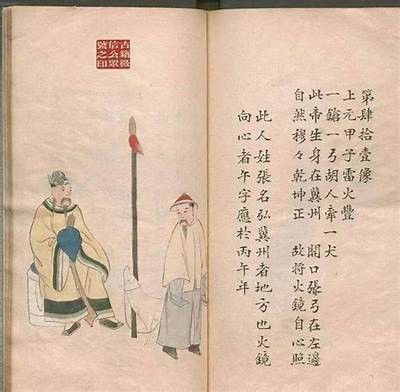 第肆拾壹像
上元甲子雷火豐
一鎗一弓胡人牽一犬
此帝生身在冀州 開口張弓在左邊
自然穆々乾坤正 故將火鏡自心照
此人姓張名弘冀州者地方也火鏡
向心者午字應於丙午年
古籍微
信公眾
號之印